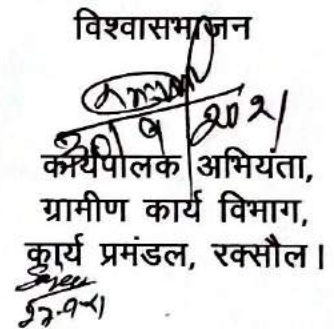 विश्वासभाजन
30/9/2021
कार्यपालक अभियंता,
ग्रामीण कार्य विभाग,
कार्य प्रमंडल, रक्सौल।